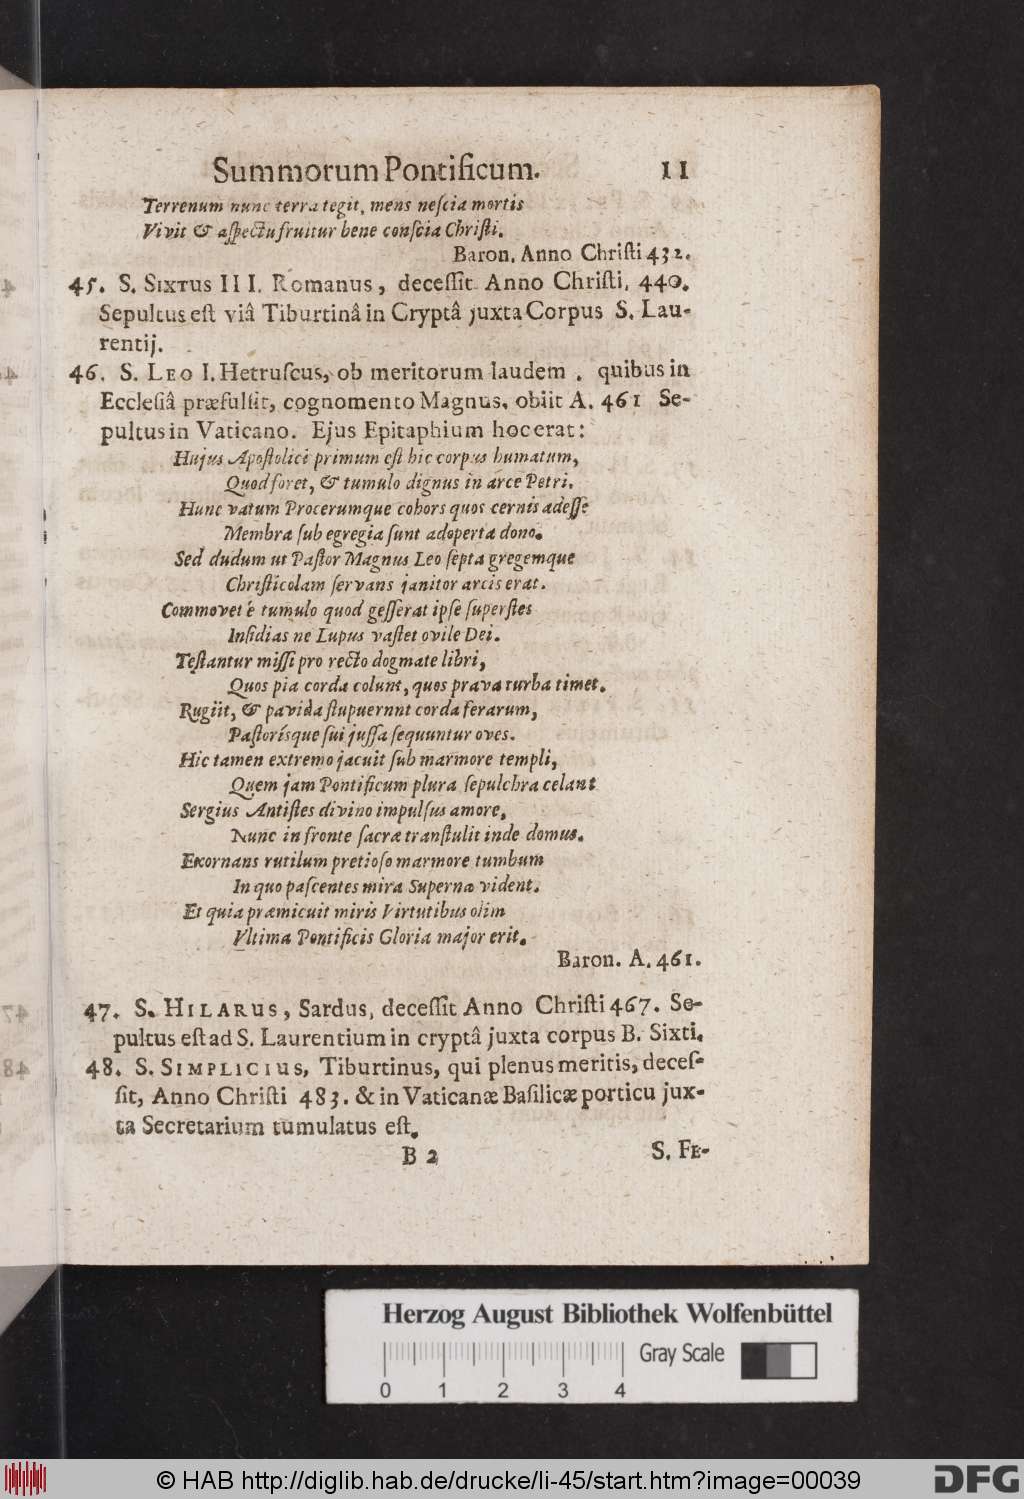 Summorum Pontificum. 11
Terrenum nunc terra tegit, mens neſcia mortis
Vivit & aſpectu fruitur bene conſcia Chriſti.
Baron. Anno Chriſti 432.
45. S. SIXTUS III. Romanus, deceſſit Anno Chriſti, 440.
Sepultus eſt viâ Tiburtinâ in Cryptâ juxta Corpus S. Lau-
rentij.
46. S. LEO I. Hetruſcus, ob meritorum laudem. quibus in
Eccleſiâ præfulſit, cognomento Magnus, obiit A. 461 Se-
pultus in Vaticano. Ejus Epitaphium hoc erat:
Hujus Apoſtolici primum eſt hic corpus humatum,
Quod foret, & tumulo dignus in arce Petri.
Hunc vatum Procerumque cohors quos cernis adeſſe
Membra ſub egregia ſunt adoperta dono.
Sed dudum ut Paſtor Magnus Leo ſepta gregemque
Chriſticolam ſervans janitor arcis erat.
Commovet é tumulo quod geſſerat ipſe ſuperſtes
Inſidias ne Lupus vaſtet ovile Dei.
Teſtantur miſſi pro recto dogmate libri,
Quos pia corda colunt, quos prava turba timet.
Rugiit, & pavida ſtupuernnt corda ferarum,
Paſtorísque ſui juſſa ſequuntur oves.
Hic tamen extremo jacuit ſub marmore templi,
Quem jam Pontificum plura ſepulchra celant
Sergius Antiſtes divino impulſus amore,
Nunc in fronte ſacræ tranſtulit inde domus.
Exornans rutilum pretioſo marmore tumbum
In quo paſcentes mira Superna vident.
Et quia præmicuit miris Virtutibus olim
Vltima Pontificis Gloria major erit.
Baron. A. 461.
47. S. HILARUS, Sardus, deceſſit Anno Chriſti 467. Se-
pultus eſt ad S. Laurentium in cryptâ juxta corpus B. Sixti.
48. S. SIMPLICIUS, Tiburtinus, qui plenus meritis, deceſ-
ſit, Anno Chriſti 483. & in Vaticanæ Baſilicæ porticu jux-
ta Secretarium tumulatus eſt.
B 2 S. FE-
Herzog August Bibliothek Wolfenbüttel
Gray Scale
0 1 2 3 4
© HAB http://diglib.hab.de/drucke/li-45/start.htm?image=00039
DFG